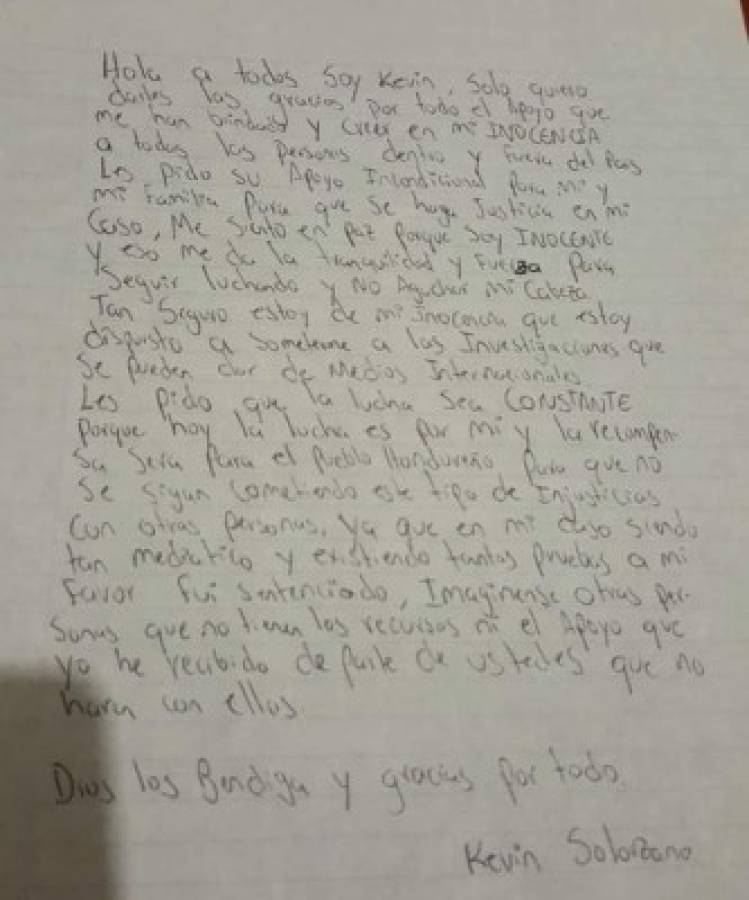 Hola a todos Soy Kevin, Solo quiero
darles las gracias por todo el Apoyo que
me han brindado y creer en mi INOCENCIA
a todas las Personas dentro y Fuera del Pais
Les pido su Apoyo Incondicional Para Mi y
mi Familia Para que Se haga Justicia en mi
Caso, Me Siento en paz Porque Soy INOCENTE
y eso me da la tranquilidad y Fuerza Para
Seguir luchando y NO Agachar mi Cabeza
Tan Seguro estoy de mi Inocencia que estoy
dispuesto a Someterme a las Investigaciones que
Se Pueden dar de Medios Internacionales
Les Pido que la lucha Sea CONSTANTE
Porque hoy la lucha es por mi y la recompen
Sa Sera Para el Pueblo Hondureño Para que no
Se Sigan Cometiendo este tipo de Injusticias
Con otras Personas, Ya que en mi caso siendo
tan mediatico y existiendo tantas Pruebas a mi
Favor Fui Sentenciado, Imaginense otras Per-
Sonas que no tienen los recursos ni el Apoyo que
yo he recibido de Parte de ustedes que no
haran con ellos
Dios los Bendiga y gracias Por todo.
Kevin Solorzano